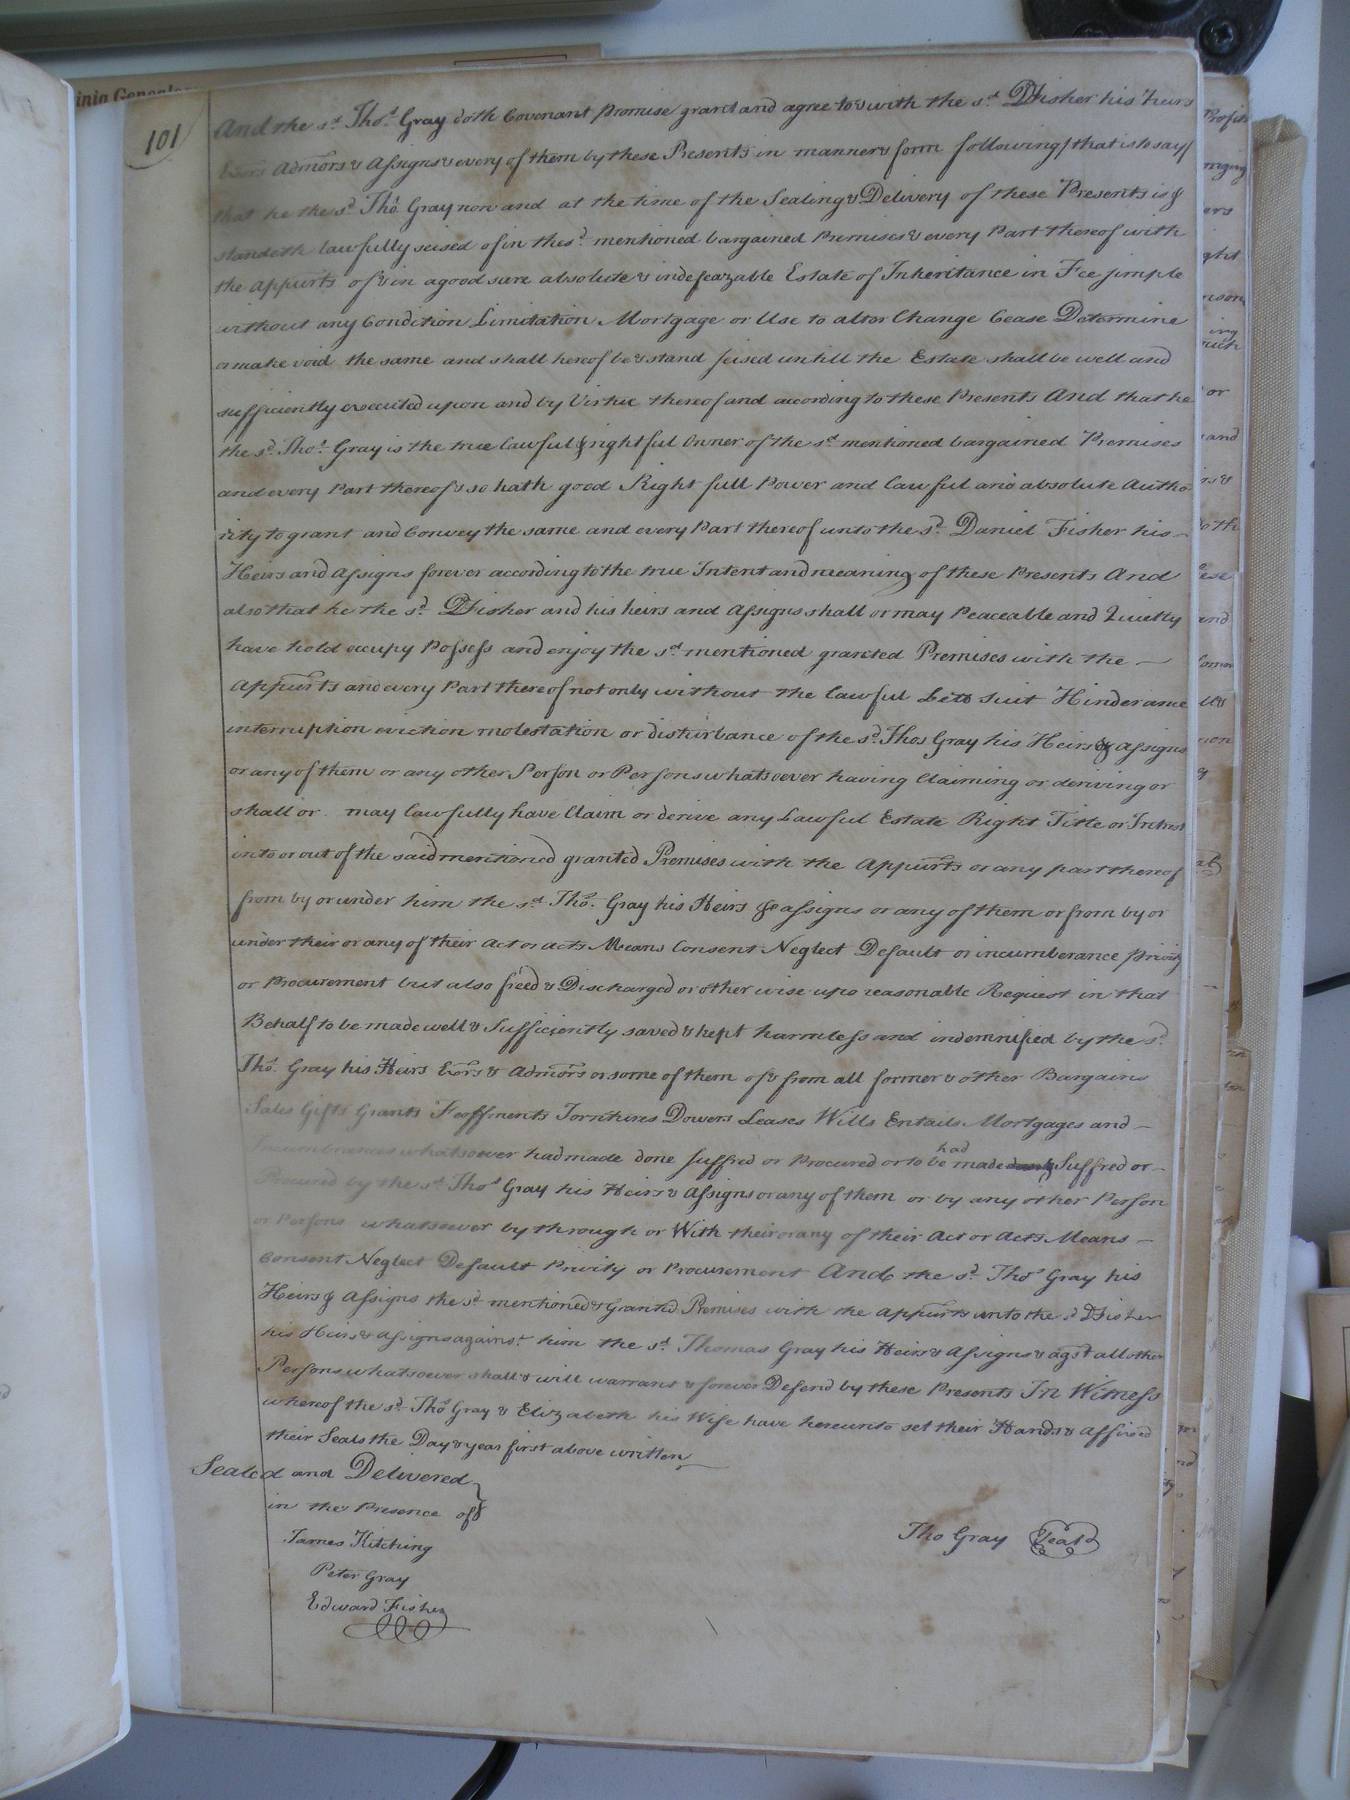 inia Genealog
101
And the sd. Thos. Gray doth Covenant Promise grant and agree to & with the sd. DFisher his heirs
Exors Admors & Assigns & every of them by these Presents in manner & form following/that is to say/
that he the sd. Tho. Gray now and at the time of the Sealing & Delivery of these Presents is &
standeth lawfully seised of in the sd. mentioned bargained Premises & every Part thereof with
the appurts of & in a good sure absolute & indefeazable Estate of Inheritance in Fee simple
without any Condition Limitation Mortgage or Use to alter Change Cease Determine
or make void the same and shall hereof be & stand seised untill the Estate shall be well and
sufficiently executed upon and by Virtue thereof and according to these Presents And that he
the sd. Thos. Gray is the true lawful & rightful Owner of the sd. mentioned bargained Premises
and every Part thereof & so hath good Right full Power and lawful and absolute Autho
rity to grant and Convey the same and every Part thereof unto the sd. Daniel Fisher his —
Heirs and Assigns forever according to the true Intent and meaning of these Presents And
also that he the sd. DFisher and his heirs and Assigns shall or may Peaceable and Quietly
have hold occupy Possess and enjoy the sd. mentioned granted Premises with the —
Appurts and every Part thereof not only without the lawful Lett Suit Hinderance
interruption eviction molestation or disturbance of the sd. Thos Gray his Heirs & Assigns
or any of them or any other Person or Persons whatsoever having Claiming or deriving or
shall or may lawfully have Claim or derive any Lawful Estate Right Title or Intrest
into or out of the said mentioned granted Premises with the Appurts or any part thereof
from by or under him the sd. Tho. Gray his Heirs & assigns or any of them or from by or
under their or any of their Act or acts Means Consent Neglect Default or incumberance privity
or Procurement but also freed & Discharged or other wise upo reasonable Request in that
Behalf to be made well & Sufficiently saved & kept harmless and indemnified by the sd.
Tho. Gray his Heirs Exors & Admors or some of them of & from all former & other Bargains
Sales Gifts Grants Feoffments Jointures Dowers Leases Wills Entails Mortgages and —
Incumbrances whatsoever had made done suffred or Procured or to be had made Suffred or —
Procured by the sd. Thos Gray his Heirs & Assigns or any of them or by any other Person
or Persons whatsoever by through or With their or any of their Act or Acts Means —
Consent Neglect Default Privity or Procurement And the sd. Thos Gray his
Heirs & Assigns the sd. mentioned & Granted Premises with the Appurts unto the sd DFisher
his Heirs & Assigns against him the sd. Thomas Gray his Heirs & Assigns & agst all other
Persons whatsoever shall & will warrant & forever Defend by these Presents In Witness
whereof the sd. Tho Gray & Elizabeth his Wife have hereunto set their Hands & affixed
their Seals the Day & year first above written
Sealed and Delivered
in the Presence of
James Kitching
Peter Gray
Edward Fisher
Tho Gray Seal